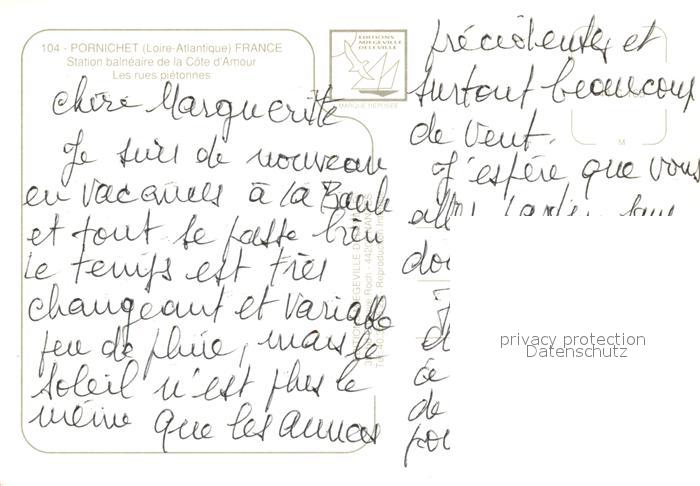 104 - PORNICHET (Loire-Atlantique) FRANCE
Station balnéaire de la Côte d'Amour
Les rues piétonnes
EDITIONS
MIEGEVILLE
DELEVILLE
MARQUE DEPOSEE
Chère Marguerite
Je suis de nouveau
en vacances à la Baule
et tout se passe bien
Le temps est très
changeant et variable
peu de pluie, mais le
soleil n'est plus le
même que les années
précédentes et
surtout beaucoup
de vent.
J'espère que vous
do
et
de
M
privacy protection
Datenschutz